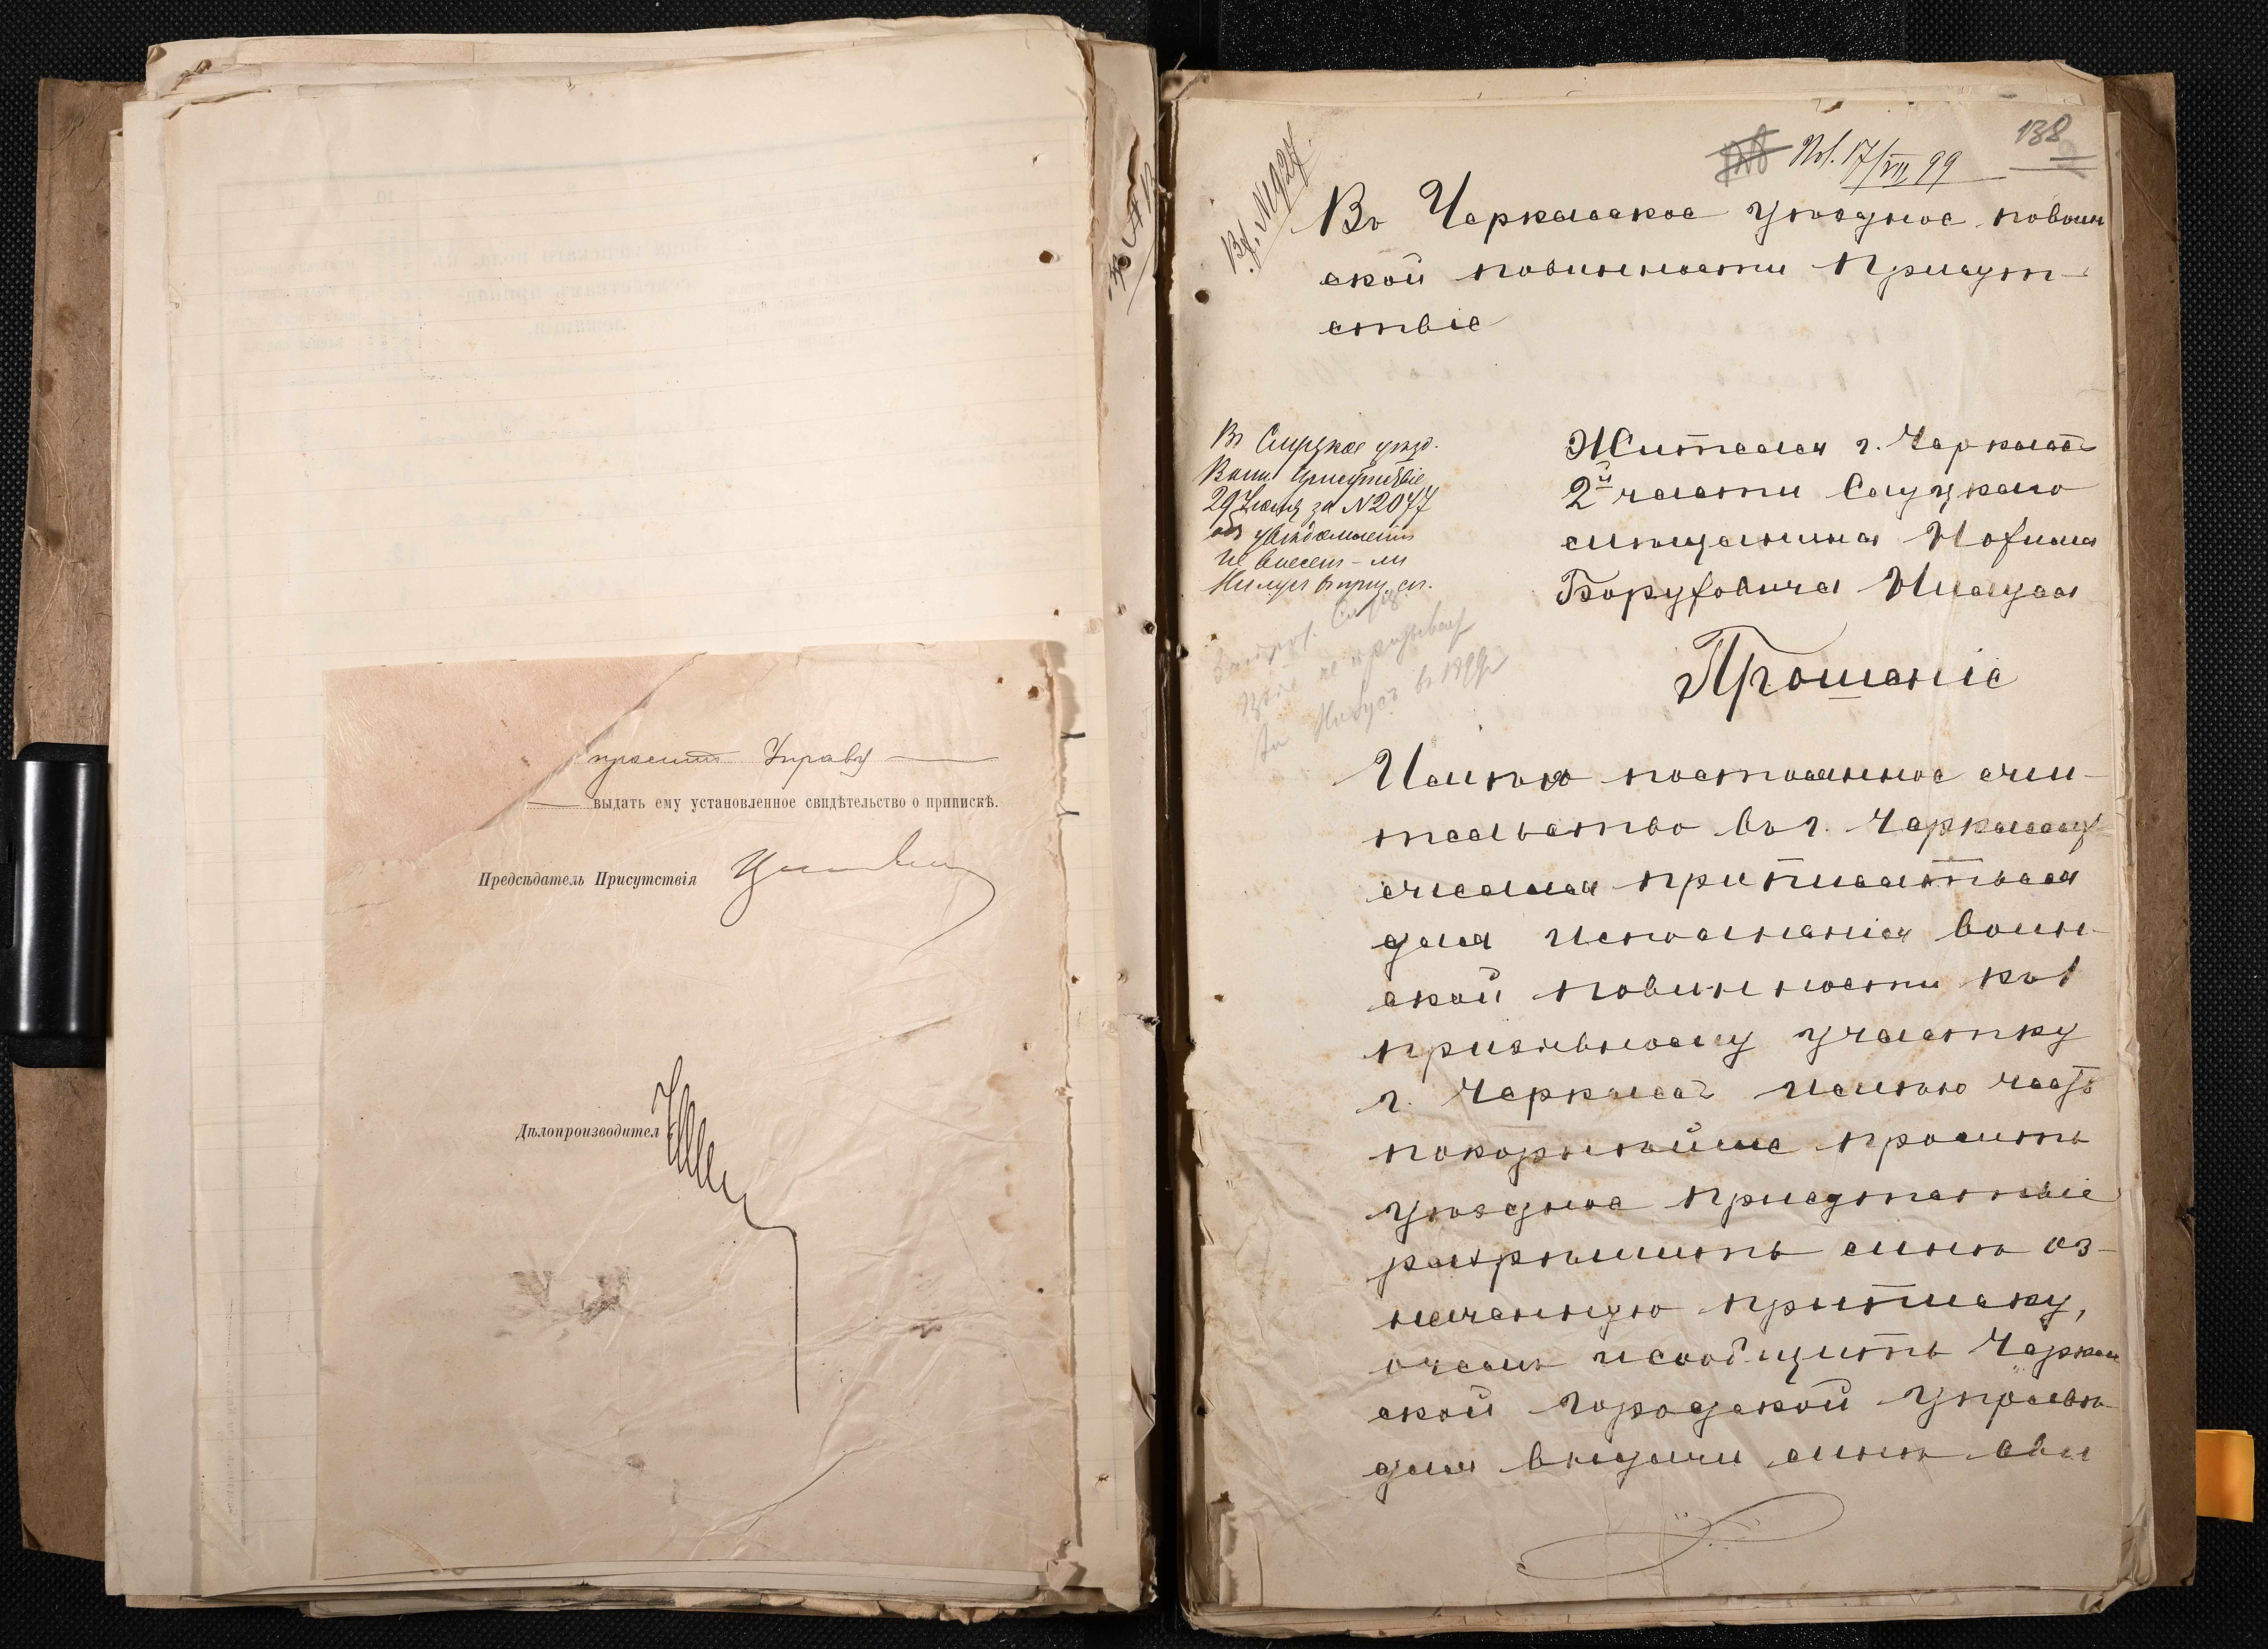 проситъ Управу
выдать ему установленное свидѣтельство о припискѣ.
Предсѣдатель Присутствія
Дѣлопроизводител
138
Пол. 17/VII 99
Вх. №1927
Въ Черкасское уѣздное повоин
ской повинности Присут-
ствіе
Въ Слуцкое уѣзд.
Воин. Присутствіе
29 Іюля за №2077
объ увѣдомленіи
не внесенъ-ли
въ приз. сп.
Жителя г. Черкассъ
2й части Слуцкаго
мѣщанина
Боруховича
Прошеніе
Имѣя постоянное жи-
тельство въ г. Черкассахъ
желая приписаться
для исполненія воин-
ской повинности къ 1
призывному участку
г. Черкассъ имѣю честь
покорнѣйше просить
уѣздное присутствіе
разрѣшить мнѣ оз-
наченную приписку,
о чемъ и сообщить Черкас
ской городской управѣ
для выдачи мнѣ сви